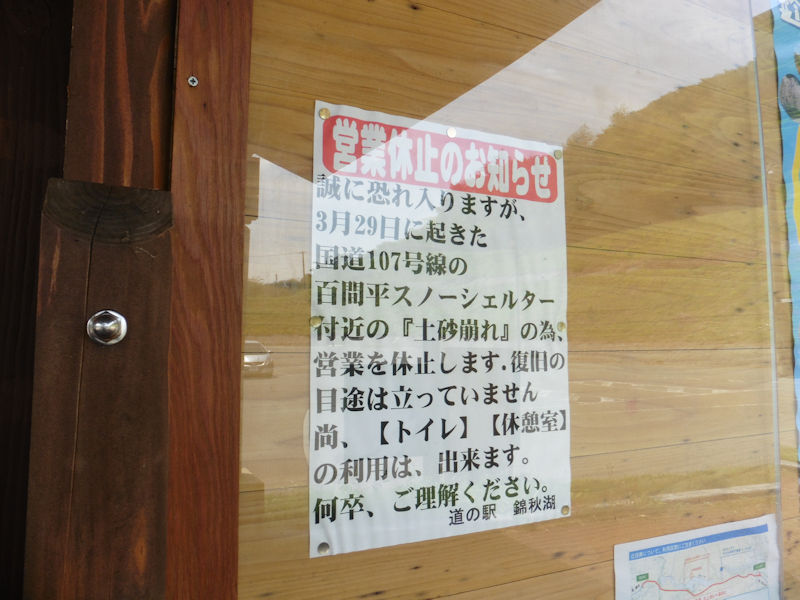 営業休止のお知らせ
誠に恐れ入りますが、
3月29日に起きた
国道107号線の
百間平スノーシェルター
付近の『土砂崩れ』の為、
営業を休止します.復旧の
目途は立っていません
尚、【トイレ】【休憩室】
の利用は、出来ます。
何卒、ご理解ください。
道の駅 錦秋湖